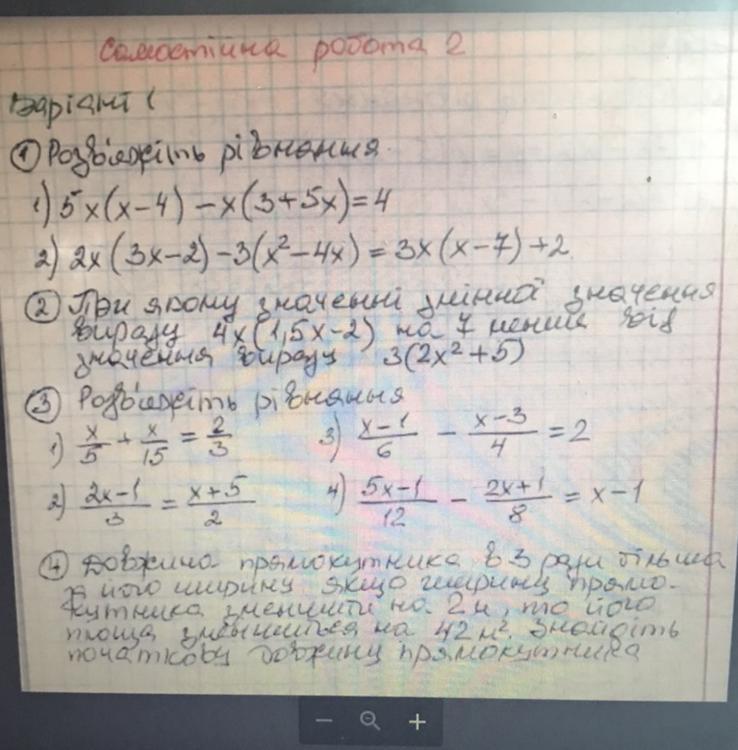 Самостійна робота 2
Варіант 1
① Розв'яжіть рівняння.
1) 5x(x-4) - x(3+5x) = 4
2) 2x(3x-2) - 3(x² - 4x) = 3x(x-7) + 2
② При якому значенні змінної значення
виразу 4x(1,5x-2) на 7 менше від
значення виразу 3(2x²+5)
③ Розв'яжіть рівняння
1) x/5 + x/15 = 2/3 3) x-1/6 - x-3/4 = 2
2) 2x-1/3 = x+5/2 4) 5x-1/12 - 2x+1/8 = x-1
④ Довжина прямокутника в 3 рази більша
за його ширину якщо ширину прямо-
кутника зменшити на 2м, то його
площа зменшиться на 42 м². Знайдіть
початкову довжину прямокутника